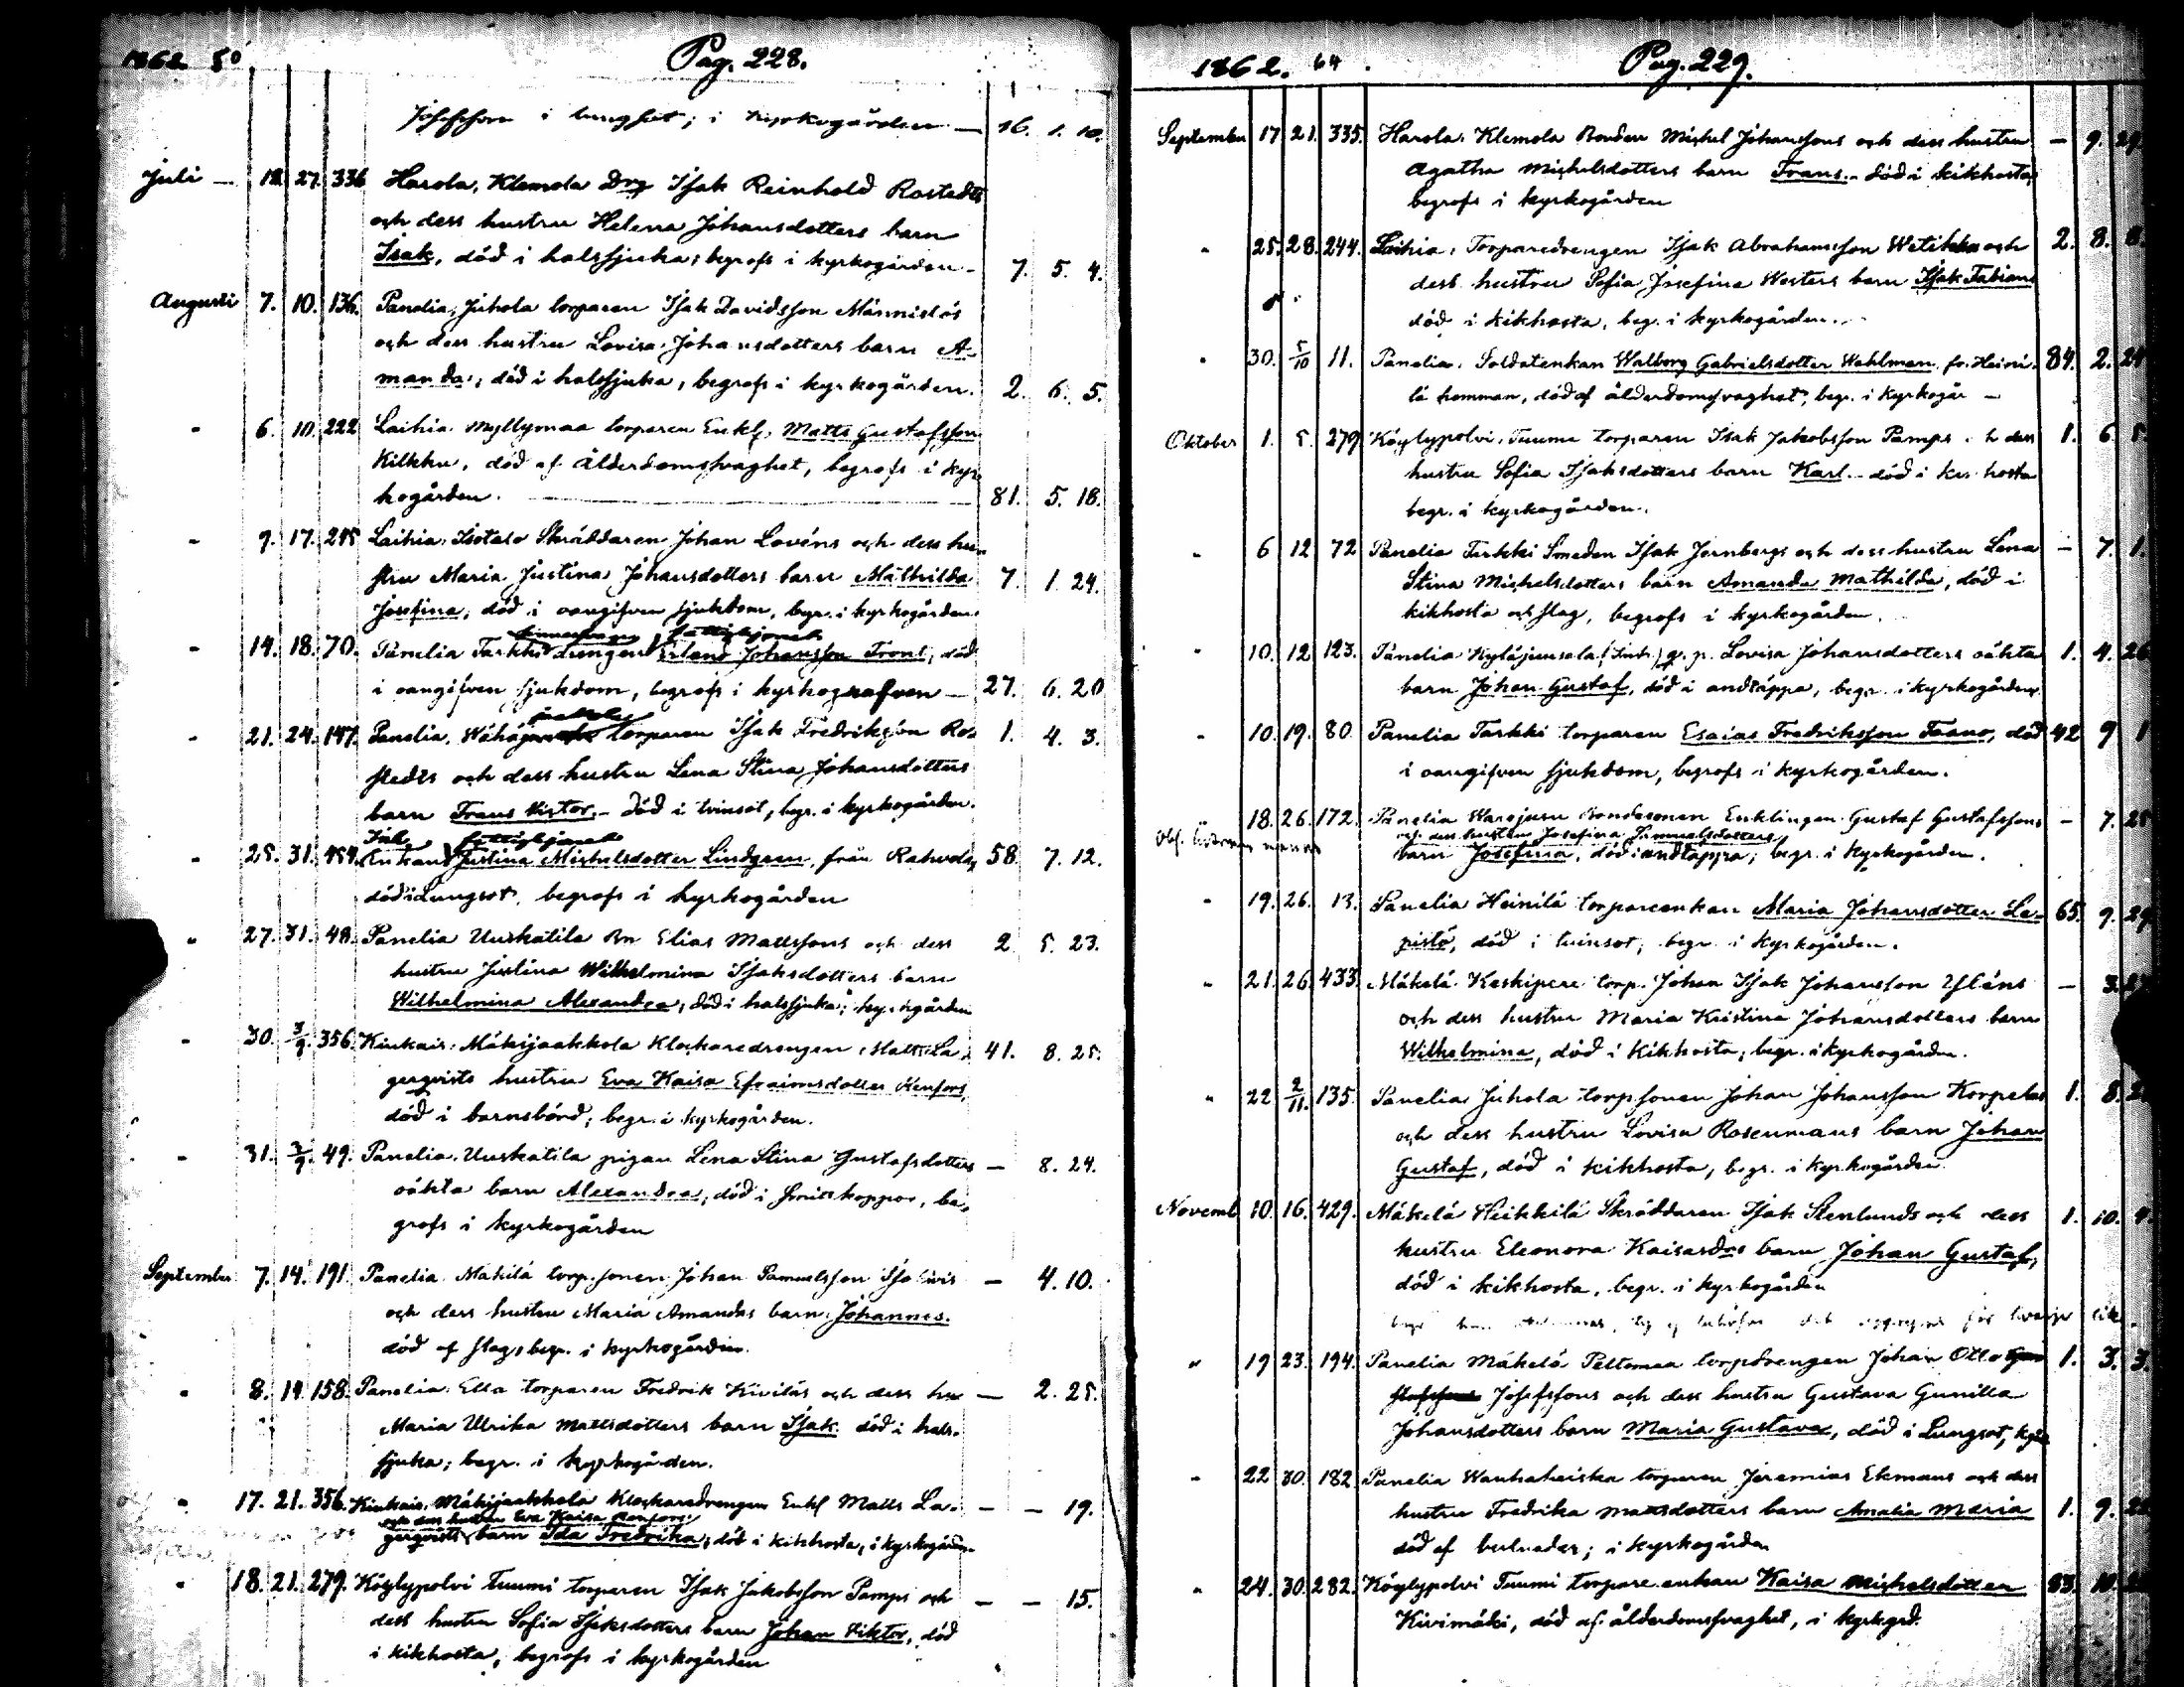 1862 50 Pag. 228.
Josefsson i lungsot; i kyrkogården — 16. 1. 10.
Juli — 18. 27. 336 Harola, Klemola Drg Isak Reinhold Rostedts
och dess hustru Helena Johansdotters barn
Isak, död i halssjuka; begrofs i kyrkogården — 7. 5. 4.
Augusti 7. 10. 136. Panelia, Juhola torparen Isak Davidsson Männistös
och dess hustru Lovisa Johansdotters barn A-
manda, död i halssjuka, begrofs i kyrkogården. 2. 6. 5.
" 6. 10. 222 Laihia Myllymaa torparen Enkl. Matts Gustafsson
Kilkku, död af ålderdomsvaghet, begrofs i kyr-
kogården. 81. 5. 18.
" 9. 17. 245 Laihia, Isotalo Skräddaren Johan Lovéns och dess hu-
stru Maria Justina Johansdotters barn Mathilda 7. 1. 24.
Josefina, död i oangifven sjukdom, begr. i kyrkogården.
" 14. 18. 70. Panelia Tarkki drengen Erland Johansson Trons, död
i oangifven sjukdom, begrofs i kyrkografven — 27. 6. 20
" 21. 24. 147. Panelia, Wähä torparen Isak Fredriksson Ro- 1. 4. 3.
stedts och dess hustru Lena Stina Johansdotters
barn Frans Victor. — död i tvinsot, begr. i kyrkogården.
" 25. 31. 454. Enkan Justina Michelsdotter Lindgren, från 58. 7. 12.
död i Lungsot, begrofs i kyrkogården
" 27. 31. 48. Panelia Uuskatila Bn Elias Mattssons och dess 2 5. 23.
hustru Justina Wilhelmina Isaksdotters barn
Wilhelmina Alexandra, död i halssjuka; kyrkgården
" 30. 3/9. 356. Kiukais, Mäkijaakkola Klockaredrengen Matts La- 41. 8. 25.
gerqvists hustru Eva Kaisa Efraimsdotter Renfors,
död i barnsbörd; begr. i kyrkogården.
" 31. 3/9. 49. Panelia, Uuskatila pigan Lena Stina Gustafsdotters — 8. 24.
oäkta barn Alexandra, död i smittkoppor, be-
grofs i kyrkogården
September 7. 14. 191. Panelia Mäkilä torp.sonen Johan Samuelsson
och dess hustru Maria Amandas barn Johannes. — 4. 10.
död af slag, begr. i kyrkogården.
" 8. 14. 158. Panelia Ella torparen Fredrik Kiviläs och dess hu — 2. 25.
Maria Ulrika Mattsdotters barn Isak död i hals-
sjuka; begr. i kyrkogården.
" 17. 21. 356. Kiukais, Mäkijaakkola Klockaredrengen Enkl Matts La- — — 19.
och dess hustru Eva Kaisa Renfors
gerqvists barn Ida Fredrika, död i kikhosta, i kyrkogården
" 18. 21. 279. Köylypolvi Tuumi torparen Isak Jakobsson Pamps och — — 15.
dess hustru Sofia Isaksdotters barn Johan Viktor, död
i kikhosta, begrofs i kyrkogården
1862. 64 Pag. 229.
September 17 21. 335. Harola, Klemola Bonden Michel Johanssons och dess hustru — 9. 29.
Agatha Michelsdotters barn Frans. — död i kikhosta,
begrofs i kyrkogården
" 25. 28. 244. Laihia, Torparedrengen Isak Abrahamsson Witikka och 2. 8. 8.
dess hustru Sofia Josefina Westers barn Isak Fabian
död i kikhosta, beg. i kyrkogården.
" 30. 5/10 11. Panelia, Soldatenkan Walborg Gabrielsdotter Wahlman, fr. Heini- 84. 2. 24
lä hemman, död af ålderdomsvaghet, begr. i kyrkogår —
Oktober 1. 5. 279 Köylypolvi, Tuumi torparen Isak Jakobsson Pamps dess 1. 6. 5
hustru Sofia Isaksdotters barn Karl. — död i hosta
begr. i kyrkogården.
" 6 12 72 Panelia Tarkki Smeden Isak Jernbergs och dess hustru Lena — 7. 1.
Stina Michelsdotters barn Amanda Mathilda, död i
kikhosta och slag, begrofs i kyrkogården.
" 10. 12 123. Panelia Kyläjuusela (Tuk.) q. p. Lovisa Johansdotters oäkta 1. 4. 26
barn Johan Gustaf, död i andtäppa, begr. i kyrkogården.
" 10. 19. 80 Panelia Tarkki torparen Esaias Fredriksson Faano, död 42 9 1
i oangifven sjukdom, begrofs i kyrkogården.
18. 26. 172. Panelia Karejuusi Bondesonen Enklingen Gustaf Gustafssons — 7. 25
och dess hustru Josefina Samuelsdotters
barn Josefina, död i andtäppa; begr. i kyrkogården.
" 19. 26. 13. Panelia Heinilä torpareenkan Maria Johansdotter Le- 65. 9. 29
pistö, död i tvinsot; begr. i kyrkogården.
" 21. 26. 433. Mäkelä Keskipere torp. Johan Isak Johansson Ylläns — 3. 27
och dess hustru Maria Kristina Johansdotters barn
Wilhelmina, död i Kikhosta; begr. i kyrkogården.
" 22 2/11. 135. Panelia Juhola torpsonen Johan Johansson Korpelas 1. 8. 2
och dess hustru Lovisa Rosenmans barn Johan
Gustaf, död i kikhosta, begr. i kyrkogården.
Novemb. 10. 16. 429. Mäkelä Heikkilä Skräddaren Isak Stenlunds och dess 1. 10. 4.
hustru Eleonora Kaisasdrs barn Johan Gustaf,
död i kikhosta, begr. i kyrkogården
" 19 23. 194. Panelia Mäkelä Peltomaa torpdrengen Johan Otto 1. 3. 3.
Josefssons och dess hustru Gustava Gunilla
Johansdotters barn Maria Gustava, död i Lungsot,
" 22 30. 182 Panelia Wanhaheiska torparen Jeremias Ekmans och dess
hustru Fredrika Mattsdotters barn Amalia Maria 1. 9. 22
död af bulnader; i kyrkogården
" 24. 30. 282. Köylypolvi Tuumi torpare enkan Kaisa Michelsdotter 83. 10.
Kivimäki, död af ålderdomsvaghet, i kyrkgrd.